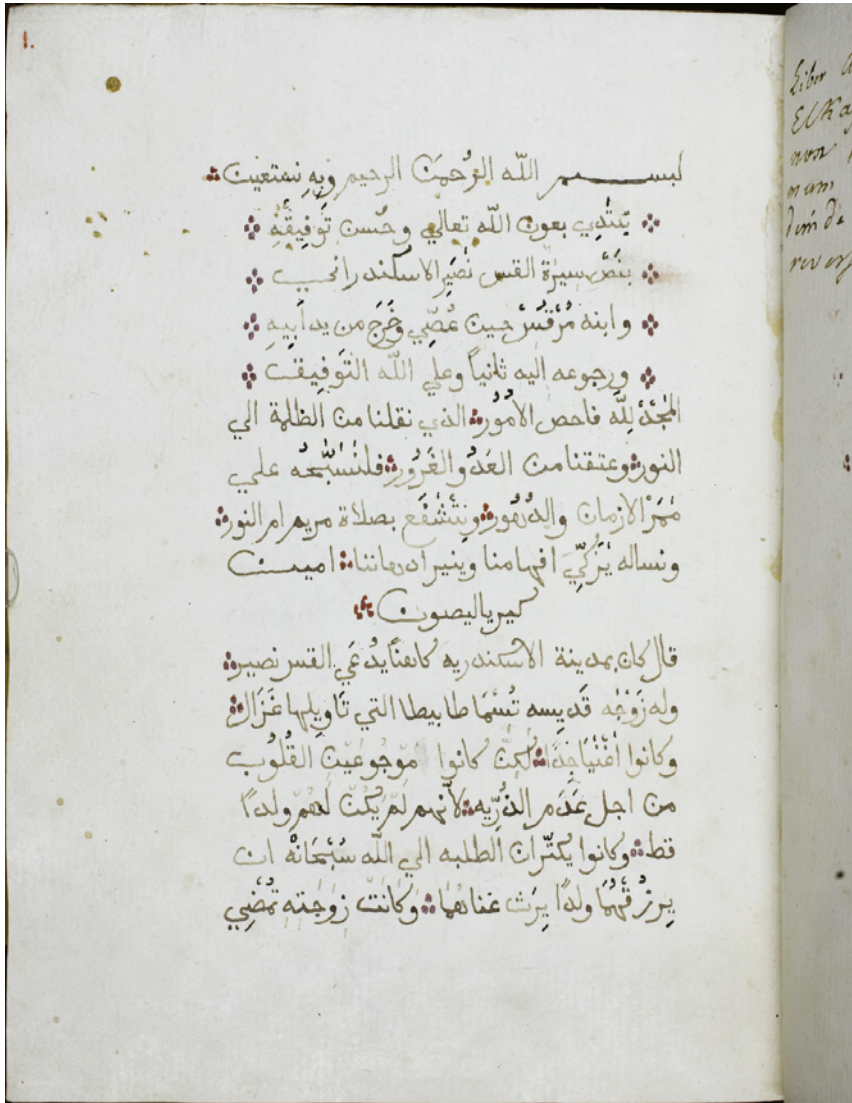 1.
بسم الله الرحمن الرحيم وبه نستعين
نبتدي بعون الله تعالي وحسن توفيقه
بنص سيرة القس نصير الاسكندراني
وابنه مرقس حين عصي وخرج من يد ابيه
ورجوعه اليه ثانياً وعلي الله التوفيق
المجد لله فاحص الامور الذي نقلنا من الظلمة الي
النور وعتقنا من العدو الغرور فلنسبحه علي
ممر الازمان والدهور ونتشفع بصلاة مريم ام النور
ونساله يزكي افهامنا وينير ادهاننا امين
كيرياليصون
قال كان بمدينة الاسكندريه كاهناً يدعي القس نصير
وله زوجه قديسه تسما طابيطا التي تاويلها غزال
وكانوا اغنيا جداً لكن كانوا موجوعين القلوب
من اجل عدم الذريه لانهم لم يكن لهم ولداً
قط وكانوا يكتران الطلبه الي الله سبحانه ان
يرزقهما ولداً يرث غناهما وكانت زوجته تمضي
Liber